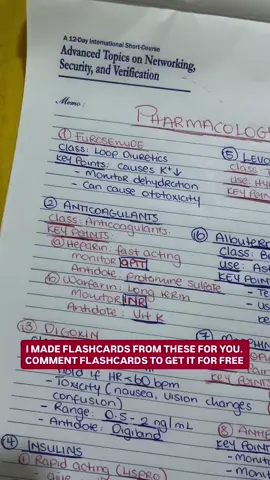 A 12-Day International Short-Course
Advanced Topics on Networking,
Security, and Verification
Memo :
PHARMACOLOG
① FUROSEMIDE
Class: Loop Diuretics
Key Points: causes K+↓
- Monitor dehydration
- Can cause ototoxicity
② ANTICOAGULANTS
Class: Anticoagulants
KEY POINTS
ⓐ Heparin: fast acting
monitor aPTT
Antidote: Protamine sulfate
ⓑ Warfarin: Long term
Monitor INR
Antidote: Vit K
③ DIGOXIN
Hold if HR<60 bpm
- Toxicity (nausea, vision changes
confusion)
- Range: 0.5 - 2 ng/mL
- Antidote: Digiband
④ INSULINS
① Rapid acting (LISPRO)
⑤ LEVO
Class:
KEY POINT
⑥ Albuter
Class: B
Use: Ast
KEY POIN
- Te
⑦
⑧ ANTI
KEY POI
- Monit
- Monit
I MADE FLASHCARDS FROM THESE FOR YOU.
COMMENT FLASHCARDS TO GET IT FOR FREE